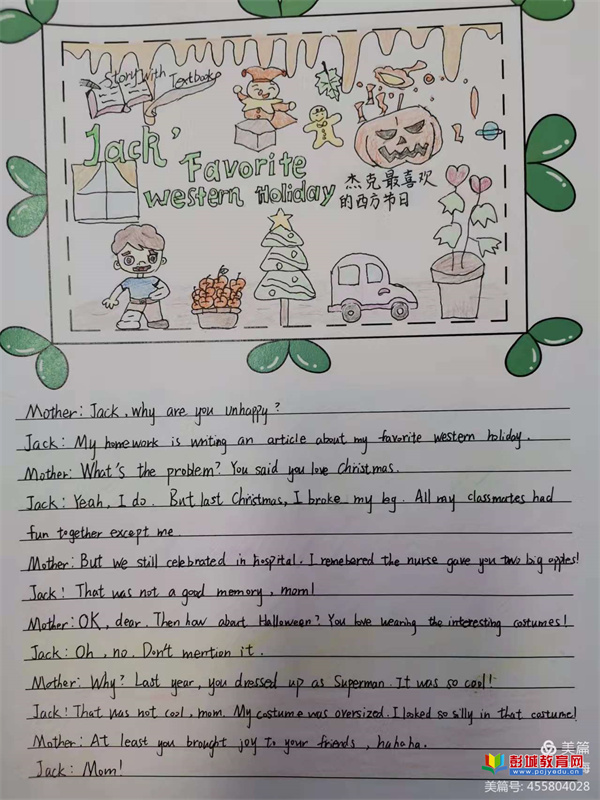 Story with Textbooks
Jack' Favorite
Western Holiday
杰克最喜欢
的西方节日
Mother: Jack, why are you unhappy?
Jack: My homework is writing an article about my favorite western holiday.
Mother: What's the problem? You said you love Christmas.
Jack: Yeah, I do. But last Christmas, I broke my leg. All my classmates had
fun together except me.
Mother: But we still celebrated in hospital. I remebered the nurse gave you two big apples!
Jack: That was not a good memory, mom!
Mother: OK, dear. Then how about Halloween? You love wearing the interesting costumes!
Jack: Oh, no. Don't mention it.
Mother: Why? Last year, you dressed up as Superman. It was so cool!
Jack: That was not cool, mom. My costume was oversized. I looked so silly in that costume!
Mother: At least you brought joy to your friends, hahaha.
Jack: Mom!
美篇
彭城教育网
www.pcjyedu.cn
美篇号: 455804028